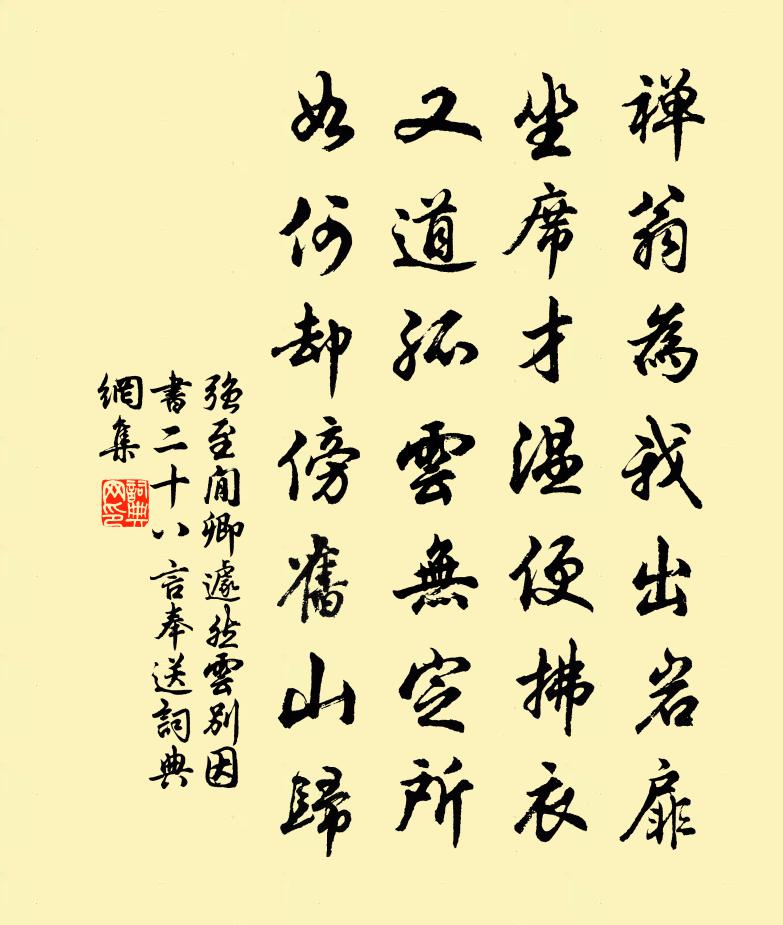 禅翁為我出岩扉
坐席才温便拂衣
又道孤雲無定所
如何却傍舊山歸
強至閒卿遽然雲別因
書二十八言奉送詞典
網集
詞典網印